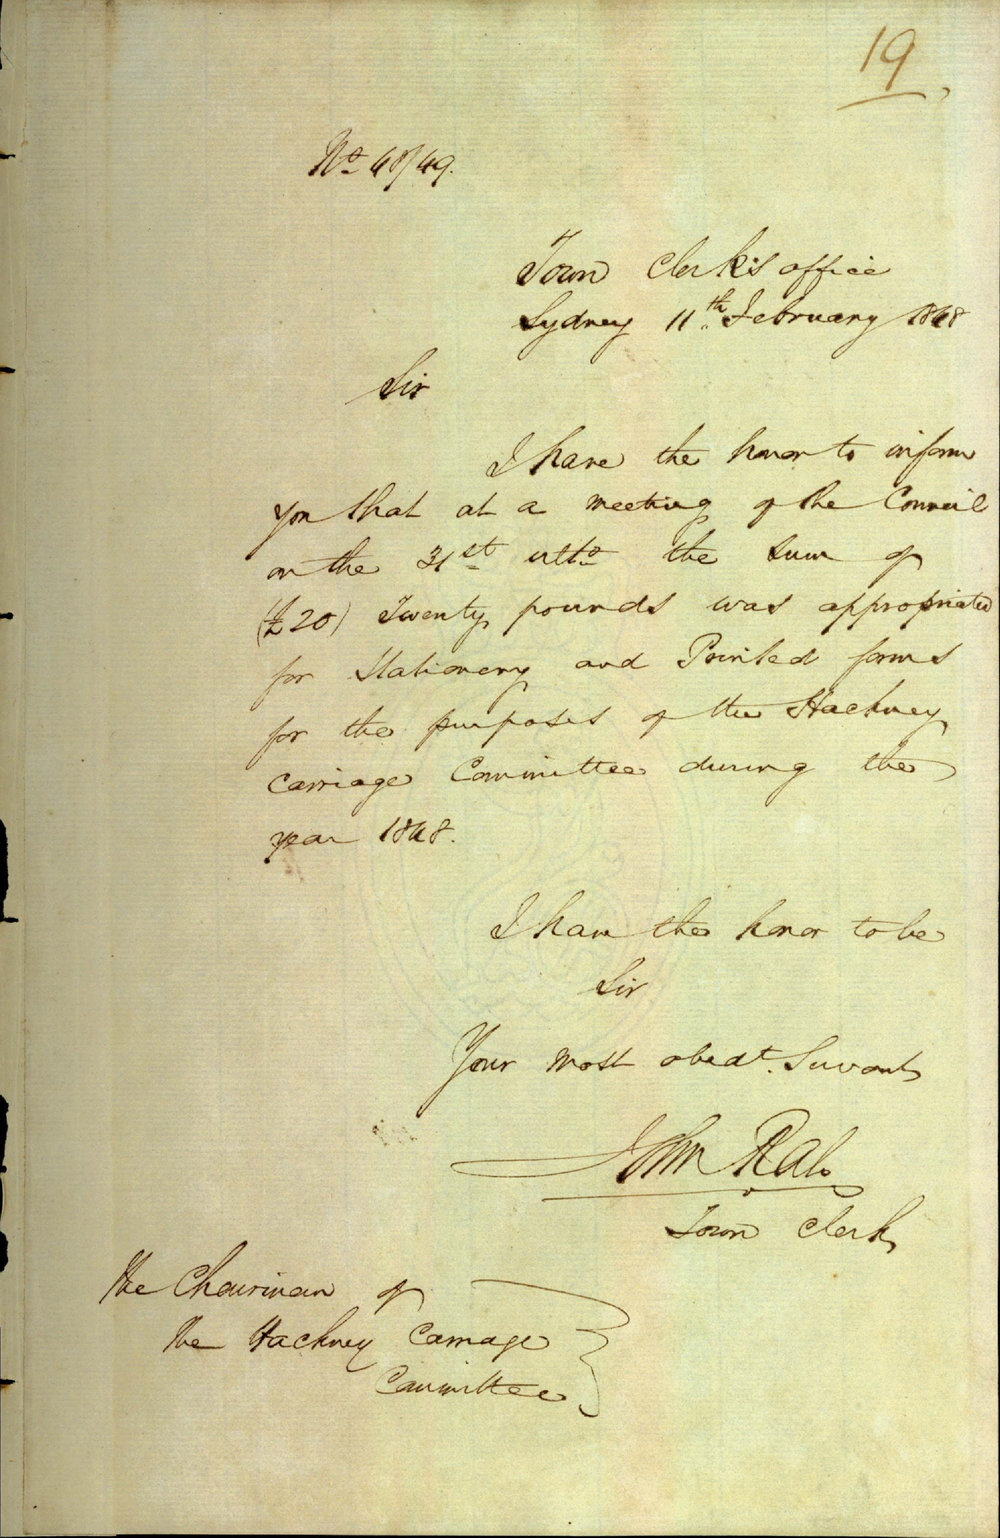 19
No 48/49.
Town Clerk's office
Sydney 11th February 1848
Sir
I have the honor to inform
you that at a meeting of the Council
on the 31st ulto the sum of
(£20) Twenty pounds was appropriated
for Stationery and Printed forms
for the purposes of the Hackney
Carriage Committee during the
year 1848.
I have the honor to be
Sir
Your most obedt. Servant
John Rae
Town Clerk
The Chairman of
the Hackney Carriage
Committee